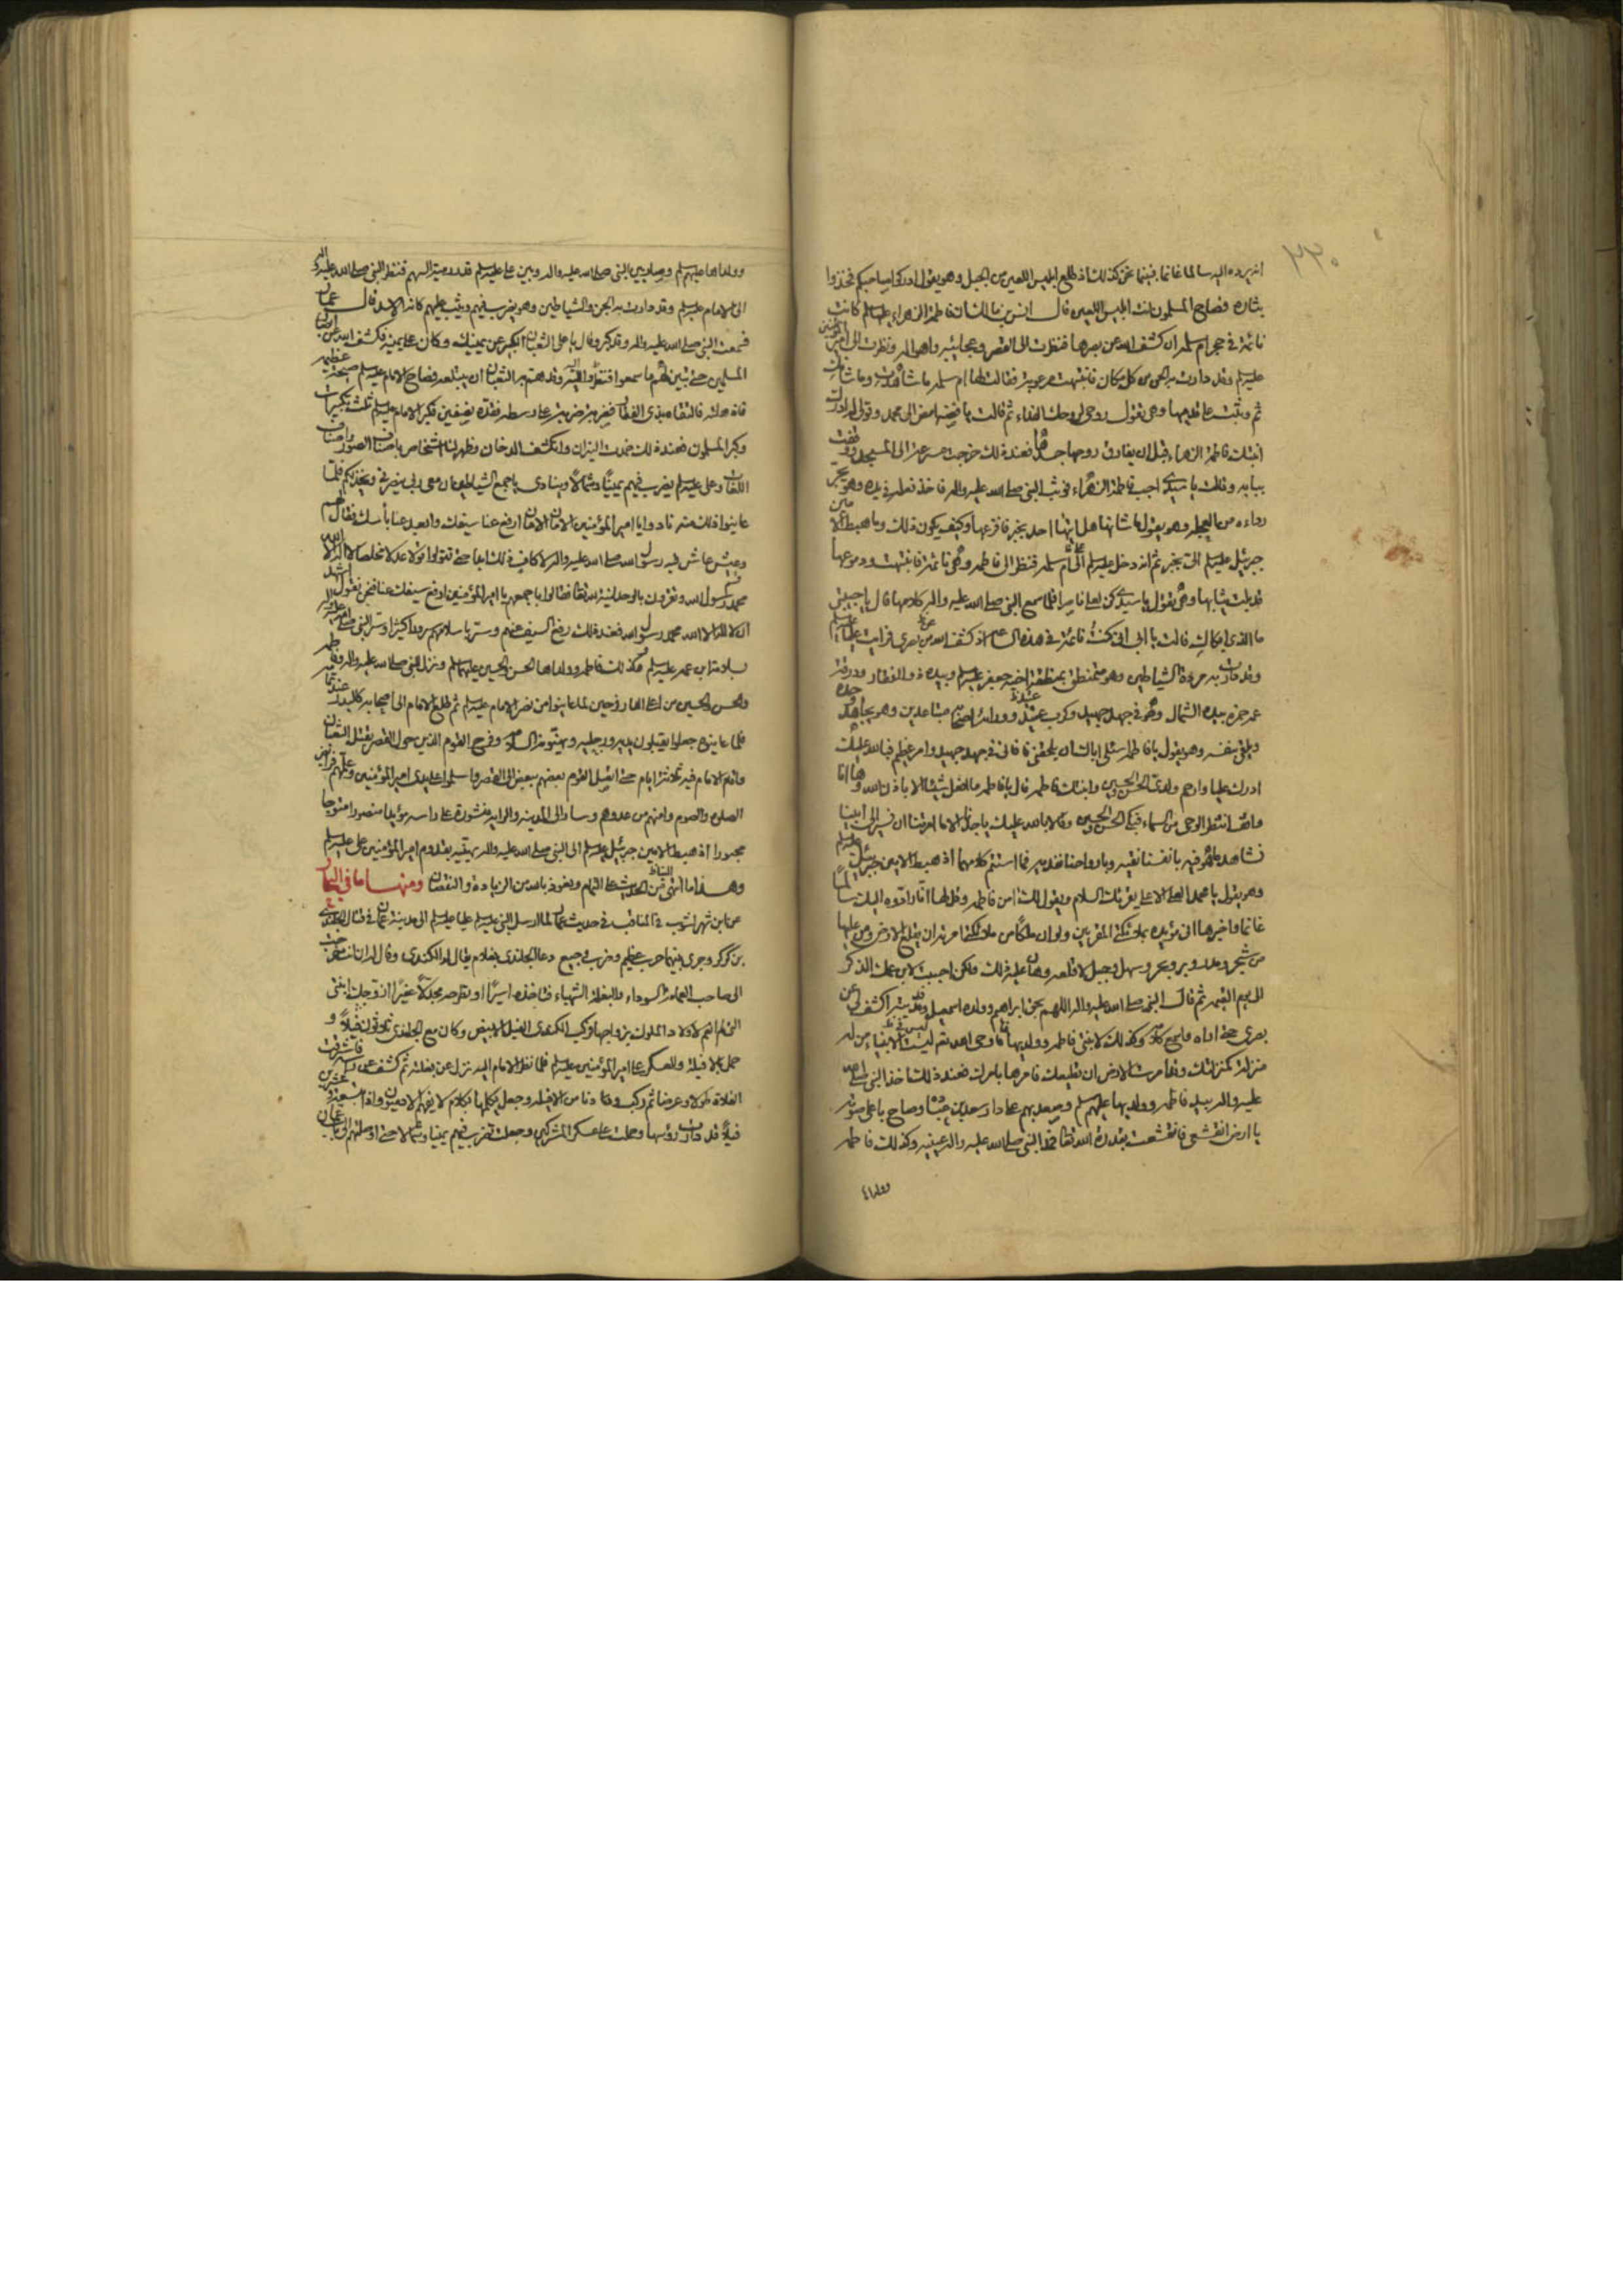 ٢٣٠
ان يرده اليه سالما غانما فبينما نحن كذلك اذ طلع ابليس اللعين من الجبل وهو يقول ادركوا صاحبكم فخذوا
بثاره فصاح المسلمون لعنت ابليس اللعين قال انس بن مالك ان فاطمة الزهراء عليها سلم كانت
نائمة في حجرة ام سلمه ان كشف الله عن بصرها فنظرت الى القصر وعجائبه واهواله ونظرت الى امير المؤمنين
عليه سلم وقد دارت به الجن من كل مكان فانتبهت مرعوبة فقالت لها ام سلمه ما شاهدت وما شانك
ثم وثبت على قدميها وهي تقول روحي لروحك الفداء ثم قالت يا فضه امض الى محمد وقولي له ادرك
ابنتك فاطمة الزهراء قبل ان يفارق روحها جسدها فعند ذلك خرجت مسرعة الى المسجد ووقفت
ببابه وقالت يا سيدي اجب فاطمة الزهراء فوثب النبي صلى الله عليه واله فاخذ نعله في يده وهو يجر
رداءه من العجله وهو يقول ما شانها هل اتيها احد بخبر فافزعها وكيف يكون ذلك وما هبط الامين
جبرئيل عليه سلم الي بخبر ثم انه دخل عليه سلم الى ام سلمه فنظر الى فاطمه وهي نائمة فانتبهت ودموعها
قد بلت ثيابها وهي تقول يا سيدي كن لعلي ناصرا فلما سمع النبي صلى الله عليه واله كلامها قال يا حبيبتي
ما الذي ابكاك قالت يا ابي اني كنت نائمة في هذه الساعة اذ كشف الله عن بصري فرايت عليا عليه سلم
وقد دارت به مردة الشياطين وهو متمنطق بمنطقة اخيه جعفر عليه سلم وبيده ذو الفقار ودرقة
عمه حمزه بيده الشمال وهو في جهد جهيد وكرب شديد وورائه اصحابه متباعدين وهو يجاهد وحده
ويلقي بنفسه وهو يقول يا فاطمه سئلي اباك ان يلحقني فاني في جهد جهيد وامر عظيم فبالله عليك
ادرك عليا وارحم ولديّ الحسن والحسين وابنتك فاطمه قال يا فاطمه ما افعل شيئا الا باذن الله وها انا
واقف انتظر الوحي من السماء فبكى الحسن والحسين وقالا بالله عليك يا جدنا الا ما امرتنا ان نسير الى ابينا
نشاهد ما هو فيه بانفسنا نقيه وبارواحنا نفديه فما استتم كلامهما اذ هبط الامين جبرئيل عليه سلم
وهو يقول يا محمد العلي الاعلى يقرئك السلام ويقول لك امن فاطمه وقل لها انا رادوه اليك سالما
غانما واخبرها اني مؤيده بملائكتي المقربين ولو ان ملكا من ملائكتي امرته ان يقلع الارض ومن عليها
من شجر ومدر وبر وبحر وسهل وجبل لاقلعه وهان عليه ذلك ولكن احببت لابن عمك الذكر
الى يوم القيمه ثم قال النبي صلى الله عليه واله اللهم بحق ابراهيم وولده اسمعيل
بصري حتى اراه واسمع كلامه وكذلك لابنتي فاطمه وولديها فاوحى الله تعالى ليس في الانبياء من له
منزلة كمنزلتك وقد امرت الارض ان تطيعك فامرها بامرك فعند ذلك اخذ النبي صلى الله
عليه واله بيد فاطمه وولديها عليهم سلم وصعد بهم على دار سعد بن عباده وصاح باعلى صوته
يا ارض انقشعي فانقشعت بقدرة الله تعالى فمد النبي صلى الله عليه واله عينيه وكذلك فاطمه
وولداه
وولداها عليهم سلم وصار بين النبي صلى الله عليه واله وبين علي عليه سلم قدر رمية السهم فنظر النبي صلى الله عليه واله
الى الامام عليه سلم وقد دارت به الجن والشياطين وهو يضرب فيهم ويثب عليهم كانه الاسد قال عمار
فسمعت النبي صلى الله عليه واله وقد كبر وقال يا علي الثعبان الكبير عن يمينك وكان على يمينه فكشف الله عن ابصار
المسلمين حتى تبين لهم ما سمعوا فنظروا اليه وقد هم به الثعبان ان يبتلعه فصاح الامام عليه سلم صيحة عظيمه
فالتقاه بذي الفقار فضربه ضربة على وسطه فقده نصفين فكبر الامام عليه سلم ثلث تكبيرات
وكبر المسلمون فعند ذلك خمدت النيران وانكشف الدخان وظهر لنا اشخاص باصناف الصور واصناف
اللغات وعلي عليه سلم يضرب فيهم يمينا وشمالا وينادي يا جمع الشياطين ان معي ربي ينصرني ويخذلكم فلما
عاينوا ذلك منه نادوا يا امير المؤمنين الامان الامان ارفع عنا سيفك وابعد عنا بأسك فقال لهم
وعيش عاش فيه رسول الله صلى الله عليه واله لا كان ذلك ابدا حتى تقولوا قولا عدلا مخلصا لا اله الا الله
محمد رسول الله وتقرون بالوحدانية لله تعالى فقالوا باجمعهم يا امير المؤمنين ارفع سيفك عنا فنحن نقول نشهد
ان لا اله الا الله محمد رسول الله فعند ذلك رفع السيف عنهم وسر باسلامهم سرورا كثيرا وسر النبي صلى الله عليه واله
بسلامة ابن عمه عليه سلم وكذلك فاطمه وولداها الحسن والحسين عليهما سلم ونزل النبي صلى الله عليه واله وفاطمه
والحسن والحسين من اعلى الدار فرحين لما عاينوا من نصر الامام عليه سلم ثم طلع الامام الى اصحابه كالبدر عند تمامه
فلما عاينوه جعلوا يقبلون يديه ورجليه ويهنوه بالسلامة وفرح القوم الذين حول القصر بقتل الثعبان
واقام الامام فيه ثلاثة ايام حتى انتقل القوم بعضهم ببعض الى القصر واسلموا على يدي امير المؤمنين وعلمهم فرائض
الصلوه والصوم وامنهم من عدوهم وسار الى المدينه والرايه منشورة على راسه مؤيدا منصورا ممنوحا
مجبورا اذ هبط الامين جبرئيل عليه سلم الى النبي صلى الله عليه واله يهنيه بقدوم امير المؤمنين علي عليه سلم
وهذا ما انتهى من الحديث على التمام ونعوذ بالله من الزيادة والنقصان ومنها ما في البحار
عن ابن شهراشوب في المناقب في حديث عمار لما ارسل النبي عليه سلم عليا عليه سلم الى مدينة عمان في قتال الجلندى
بن كركر وجرى بينهما حرب عظيم وضرب وجيع دعا الجلندى بغلام يقال له الكندي وقال له ان انت خرجت
الى صاحب العمامة السوداء والبغلة الشهباء فتاخذه اسيرا او تطرحه مجدلا عفيرا ازوجك ابنتي
التي لم انعم لاولاد الملوك بزواجها فركب الكندي الفيل الابيض وكان مع الجلندى ثلاثون فيلا و
حمل بالافيلة والعسكر على امير المؤمنين عليه سلم فلما نظر الامام اليه نزل عن بغلته ثم كشف عن راسه فاشرقت
الفلاة طولا وعرضا ثم ركب ودنا من الافيله وجعل يكلمها بكلام لا يفهمه الادميون واذا بتسعة وعشرين
فيلا قد دارت رؤسها وحملت على عسكر المشركين وجعلت تضرب فيهم يمينا وشمالا حتى اوصلتهم الى باب عمان